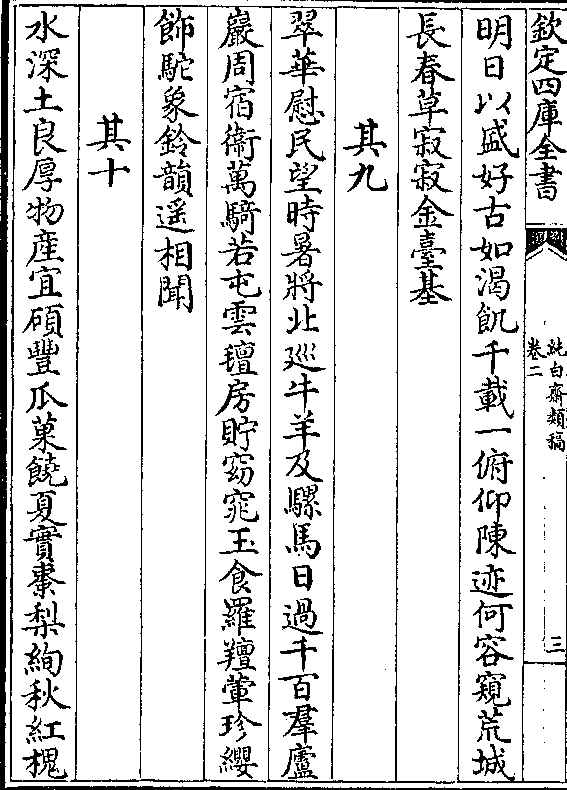 欽定四庫全書
純白齋類稿
卷二
三
明日以盛好古如渴飢千載一俯仰陳迹何容窺荒城
長春草寂寂金臺基
其九
翠華慰民望時暑將北廵牛羊及騾馬日過千百羣廬
巖周宿衞萬騎若屯雲氊房貯窈窕玉食羅羶葷珍纓
飾駝象鈴韻遥相聞
其十
水深土良厚物産宜碩豐瓜菓饒夏實棗梨絢秋紅槐